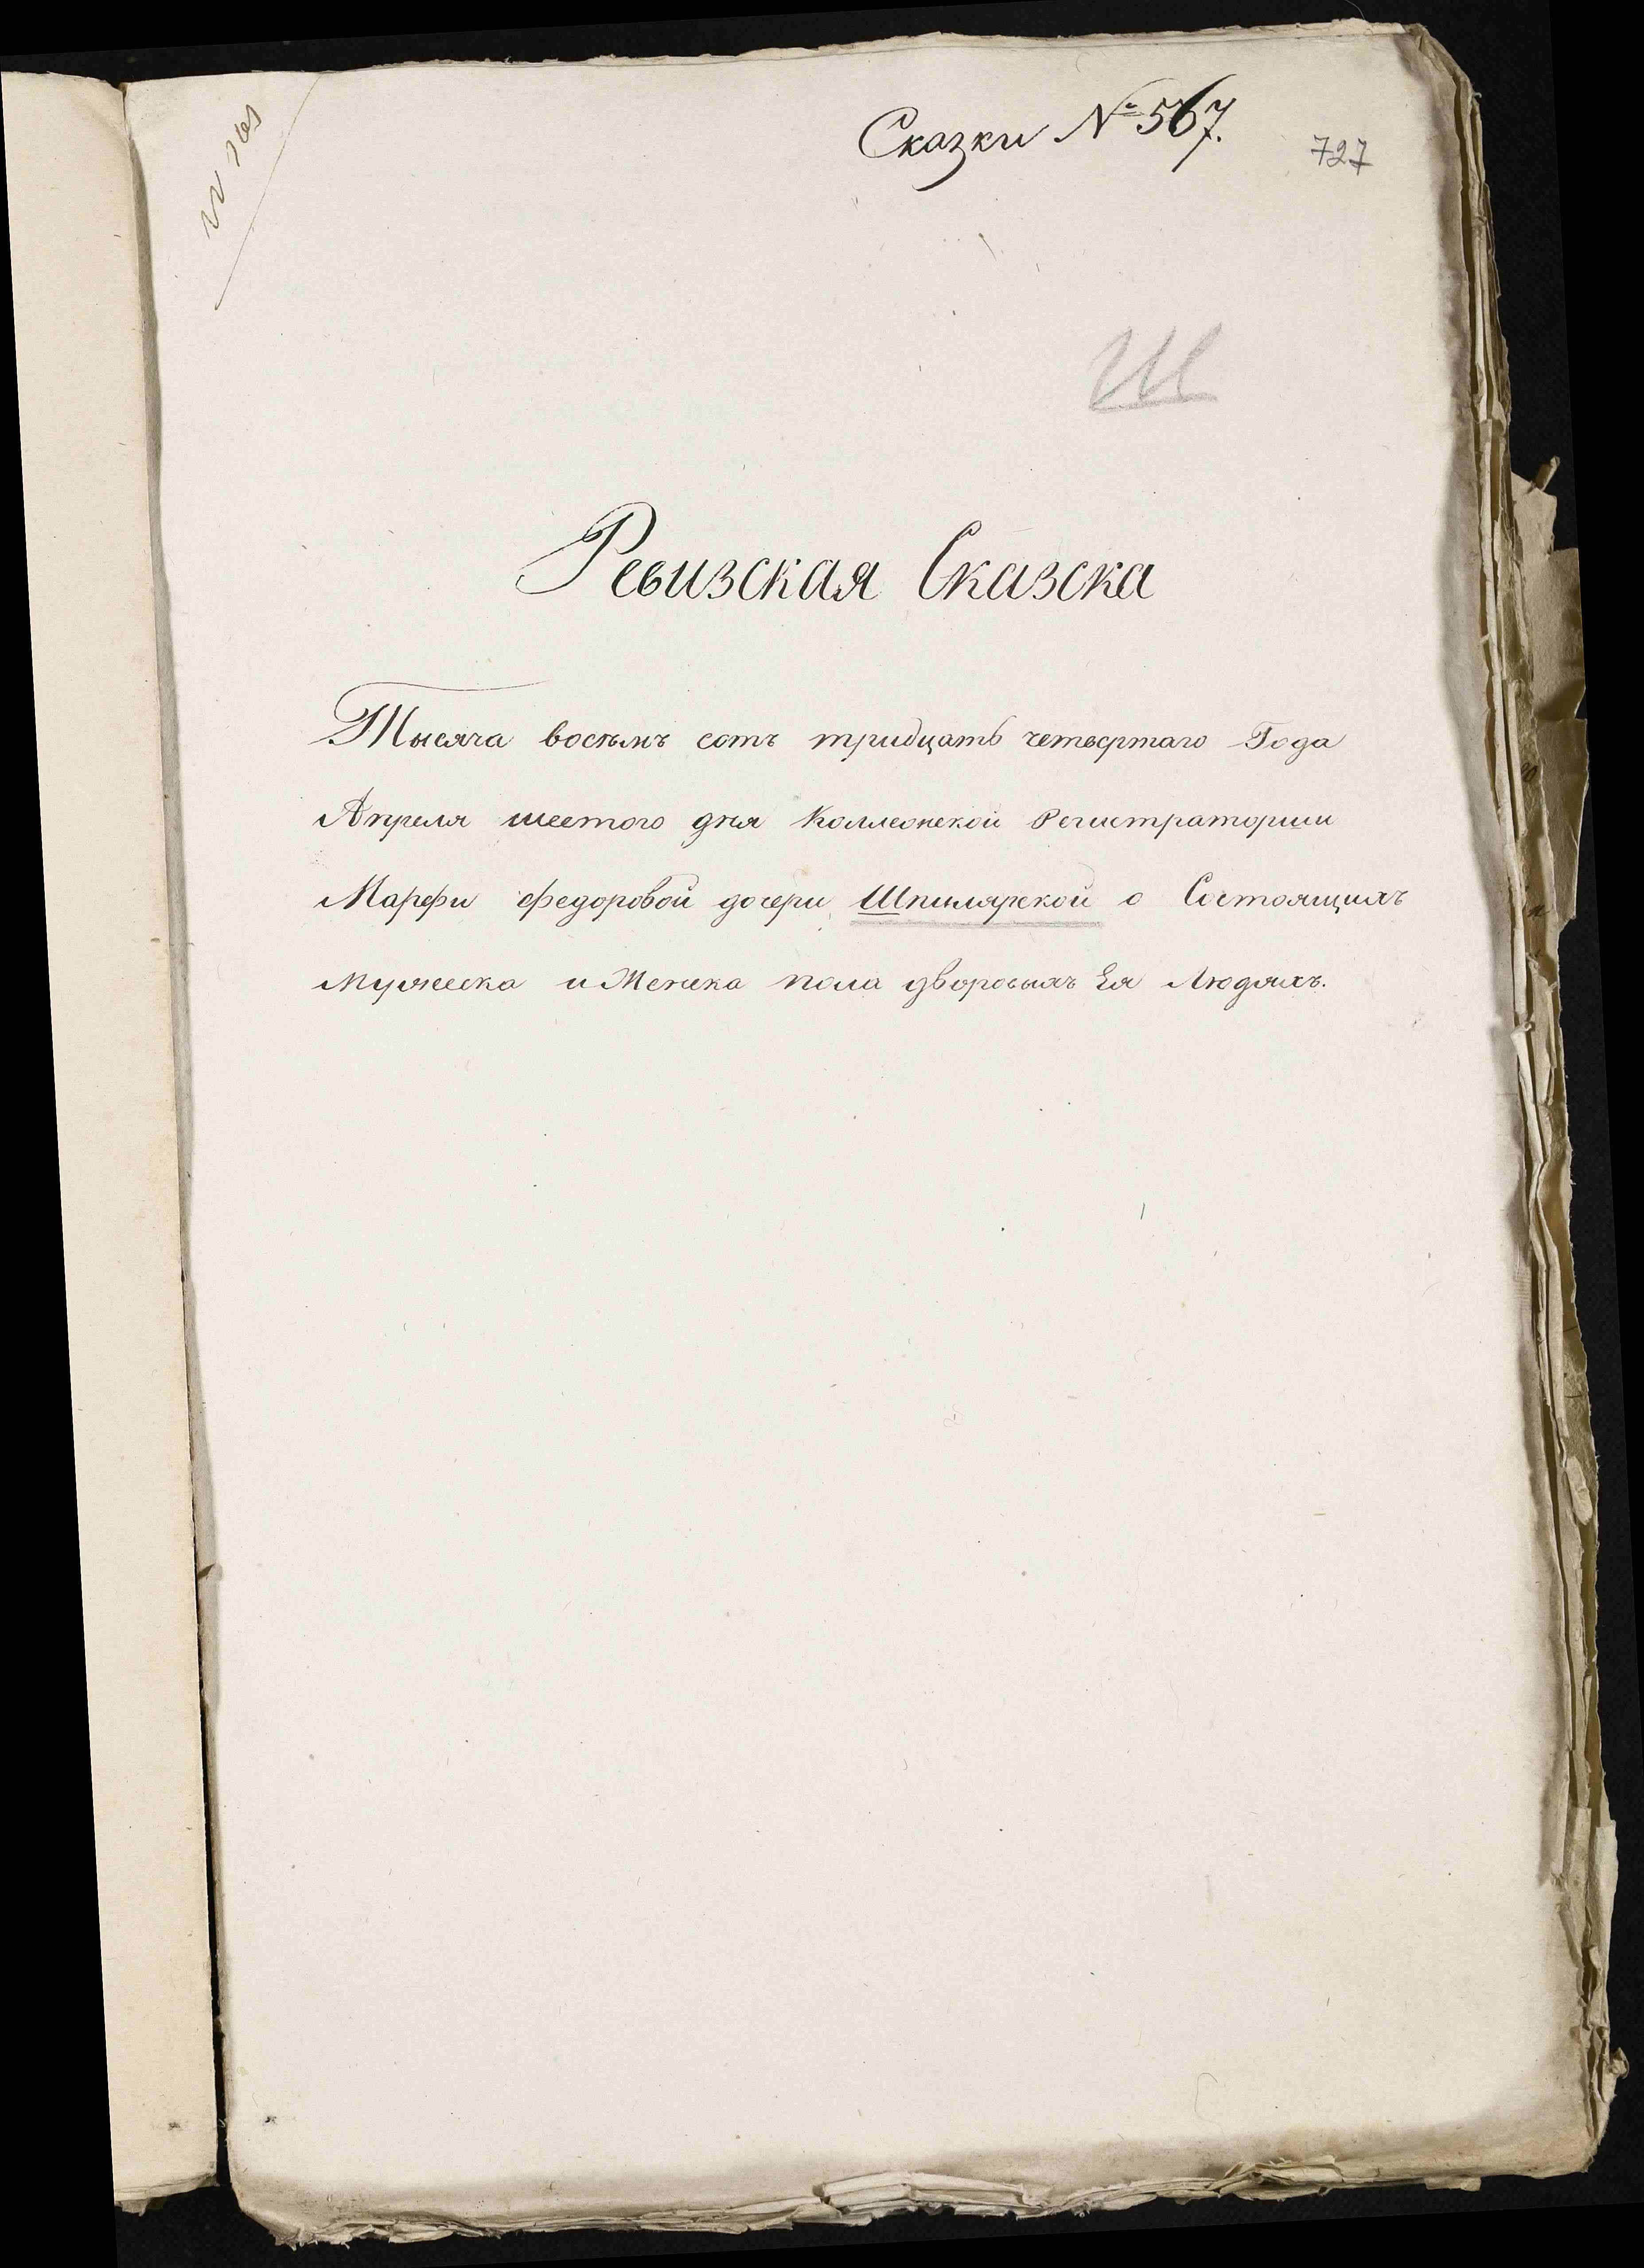 Сказки № 567.
727
Ш
Ревизская Сказска
Тысяча восемъ сотъ тридцать четвертаго Года
Апреля шестого дня Коллежской Регистраторши
Марфы Федоровой дочери Шпилярской о Состоящихъ
Мужеска и Женска пола дворовыхъ Ея Людяхъ.